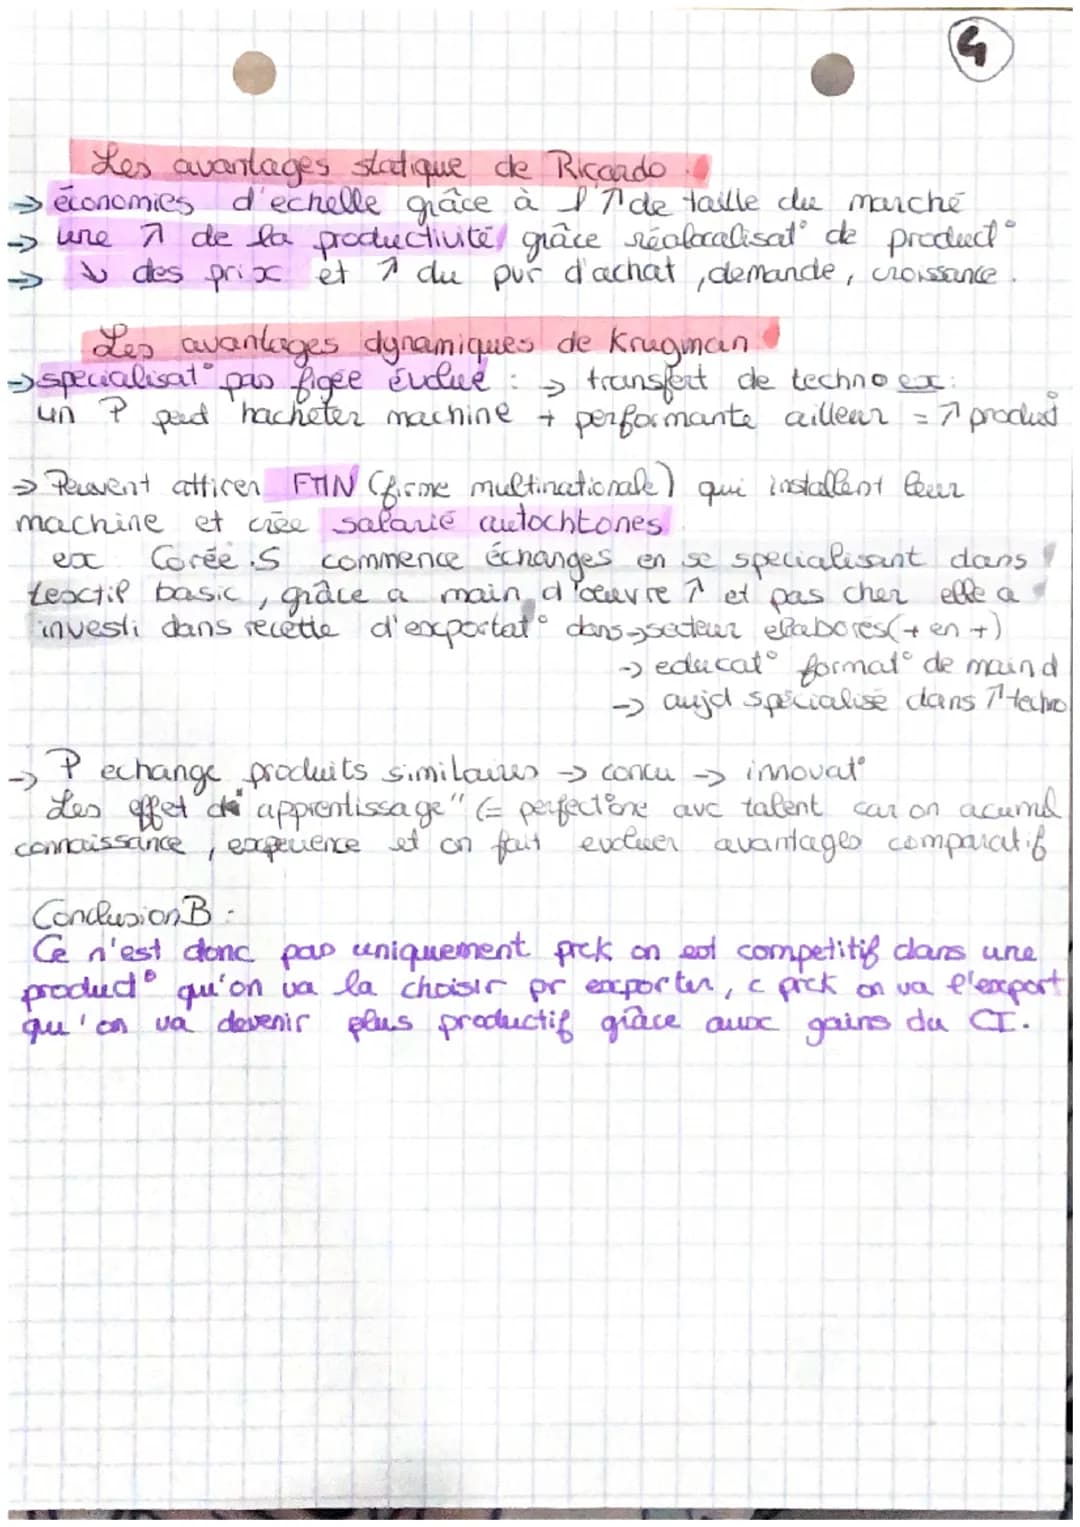 4
Les avantages statique de Ricardo.
→ économies d'echelle grâce à l'↗ de taille du marché
→ une ↗ de la productivité grâce réalocalisat° de product°
→ ↘ des prix et ↗ du pvr d'achat, demande, croissance.
Les avantages dynamiques de Krugman
→ specialisat° pas figée évolue : → transfert de techno ex:
un P peut hacheter machine + performante ailleur = ↗ product°
→ Peuvent attirer FTN (firme multinationale) qui installent leur
machine et crée salarié autochtones
ex Corée.S commence échanges en se specialisant dans
textil basic, grâce a main d'œuvre ↗ et pas cher elle a
investi dans recette d'exportat° dans → secteur elaborés (+ en +)
→ educat° format° de main d
→ aujd specialisé dans ↗ techno
→ P echange produits similaires → concu → innovat°
Les effet d'"apprentissage" (= perfect°ne avc talent car on acumul
connaissance, experience et on fait evoluer avantages comparatif
Conclusion B :
Ce n'est donc pas uniquement prck on est competitif dans une
product° qu'on va la choisir pr exporter, c prck on va l'export
qu'on va devenir plus productif grâce aux gains du CI.